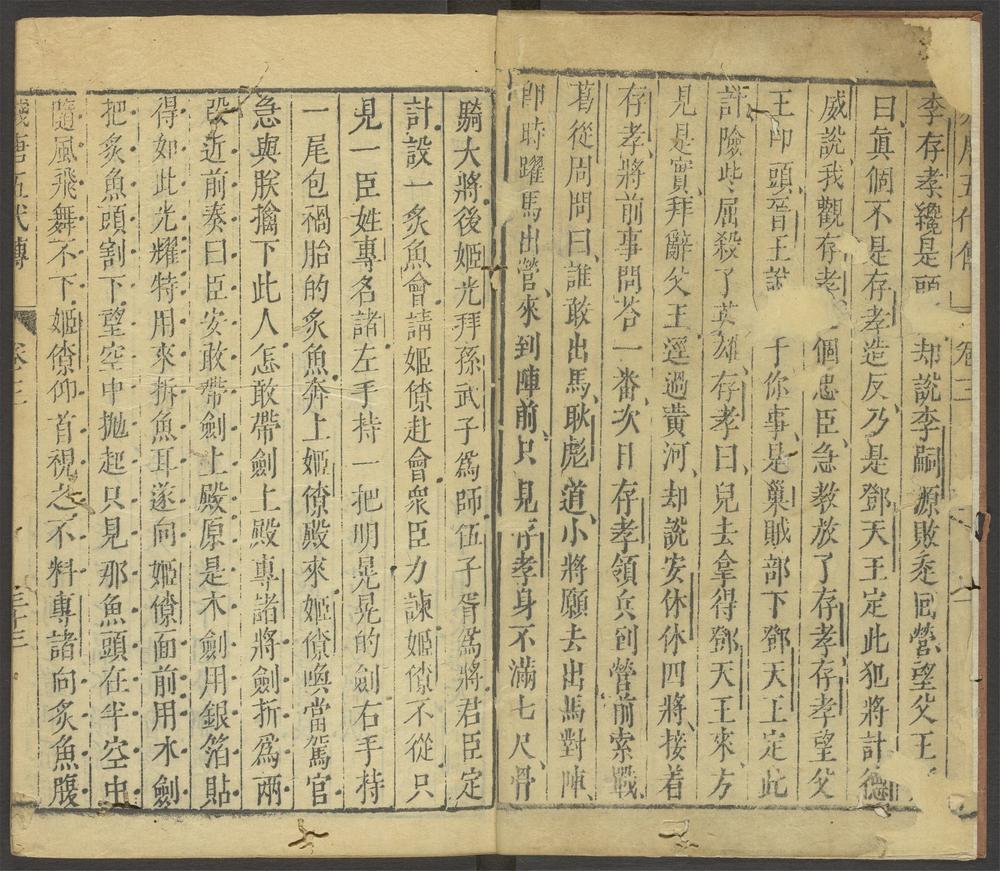 五代傳 卷三
李存孝纔是頭 却說李嗣源敗走回營望父王
曰真個不是存孝造反乃是鄧天王定此犯將計德
威說我觀存孝 個忠臣急教放了存孝存孝望父
王叩頭晉王說 于你事是巢賊部下鄧天王定此
計險些屈殺了英雄存孝曰兒去拿得鄧天王來方
見是實拜辭父王逕過黄河却說安休休四將接着
存孝將前事問答一番次日存孝領兵到營前索戰
葛從周問曰誰敢出馬耿彪道小將願去出馬對陣
即時躍馬出營來到陣前只見存孝身不滿七尺骨
騎大將後姬光拜孫武子爲師伍子胥爲將君臣定
計設一炙魚會請姬僚赴會衆臣力諫姬僚不從只
見一臣姓專名諸左手持一把明晃晃的劍右手持
一尾包禍胎的炙魚奔上姬僚殿來姬僚喚當駕官
急與朕擒下此人怎敢帶劍上殿專諸將劍折爲兩
段近前奏曰臣安敢帶劍上殿原是木劍用銀箔貼
得如此光耀特用來拆魚耳遂向姬僚面前用水劍
把炙魚頭割下望空中拋起只見那魚頭在半空中
隨風飛舞不下姬僚仰首視之不料專諸向炙魚腹
殘唐五代傳 卷三 三十三